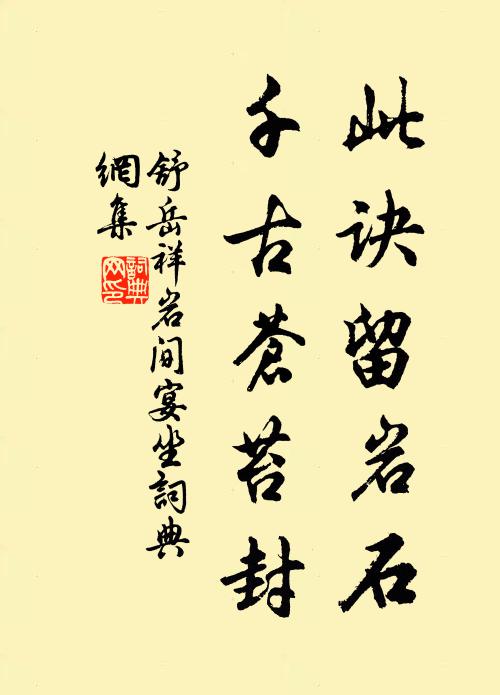 此诀留岩石
千古蒼苔封
舒岳祥岩间宴坐詞典
網集
詞典
网印